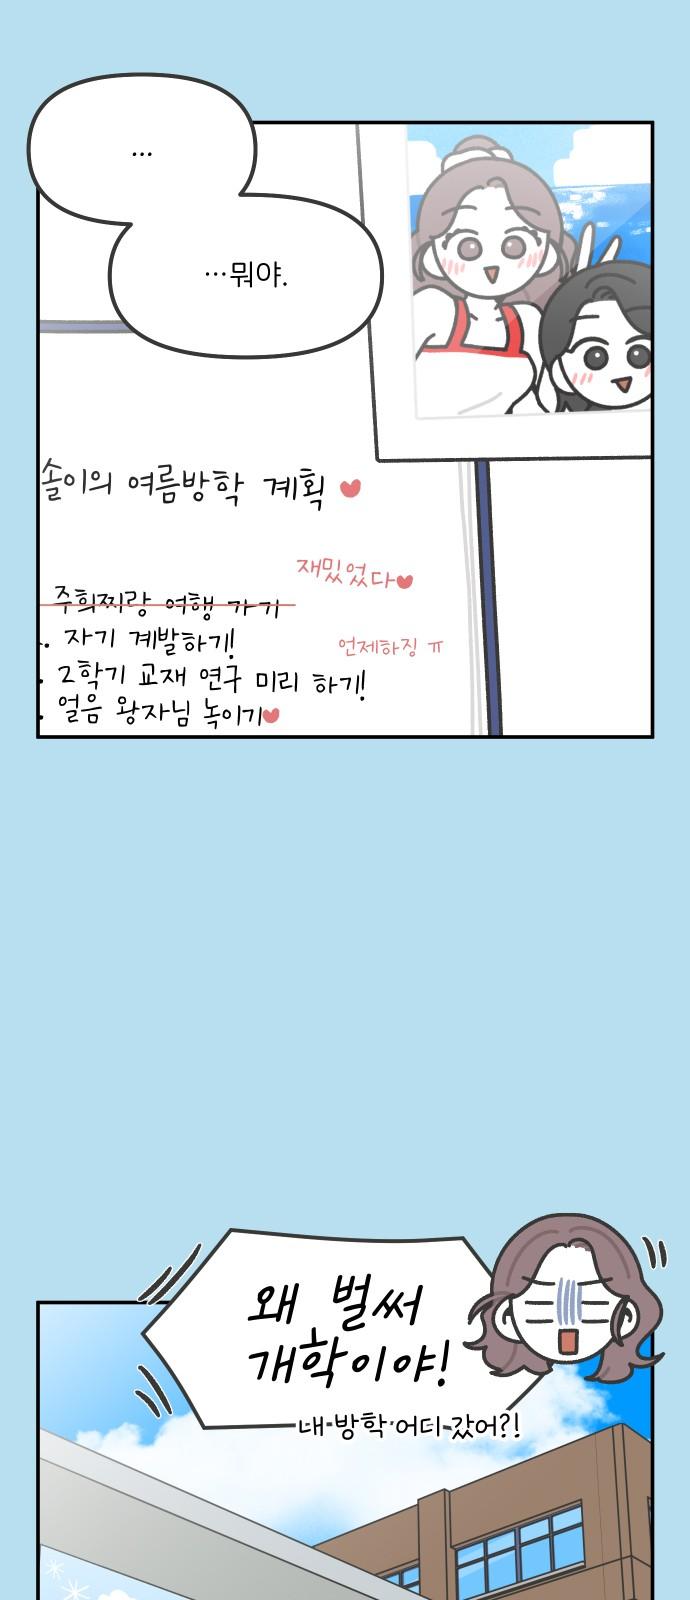 …
…뭐야.
솔이의 여름방학 계획 ♥
재밌었다♥
주희찌랑 여행 가기
. 자기 계발하기!
언제하징 ㅠ
. 2학기 교재 연구 미리 하기!
. 얼음 왕자님 녹이기♥
왜 벌써
개학이야!
내 방학 어디 갔어?!